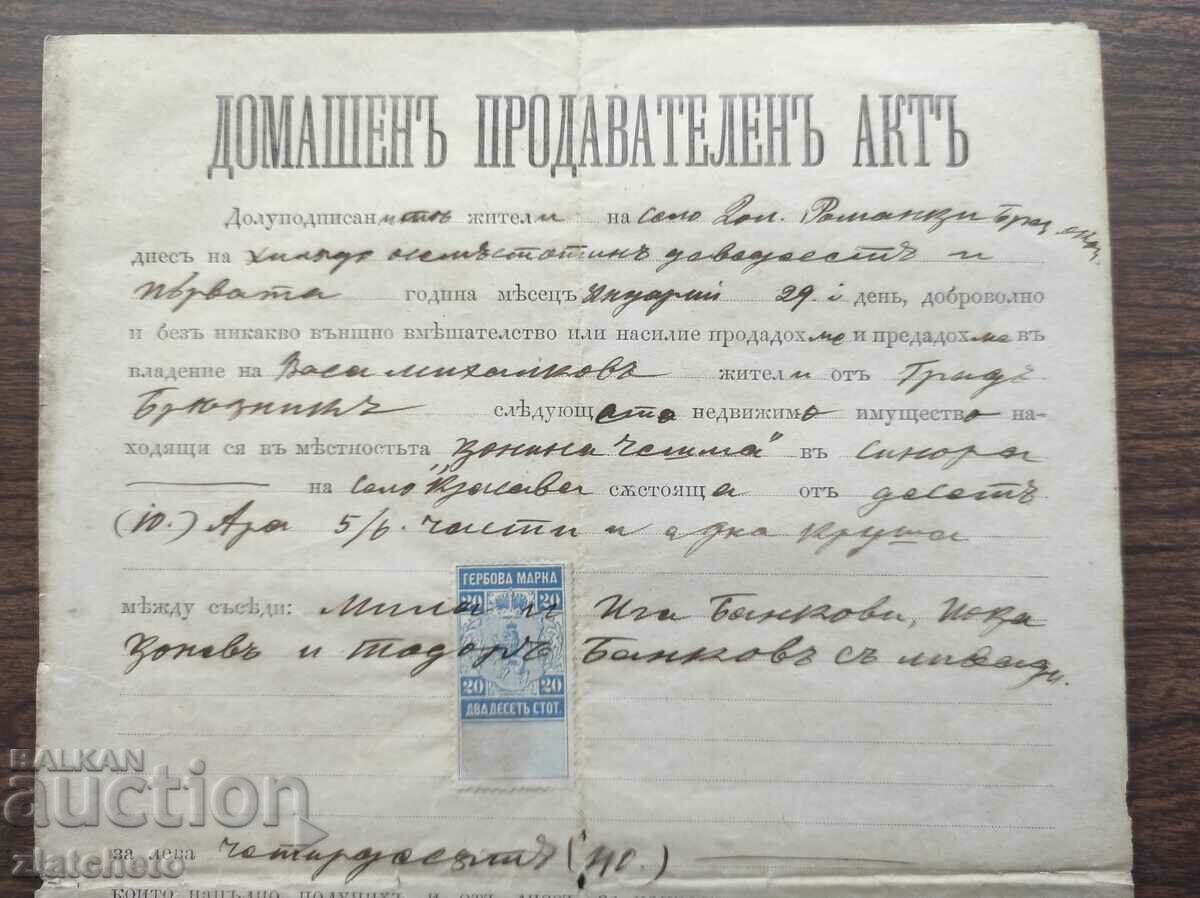 ДОМАШЕНЪ ПРОДАВАТЕЛЕНЪ АКТЪ
Долуподписан жители на село Дол. Романци
днесъ на хилядо осемстотинъ деведесетъ и
първата година мѣсецъ Януарий 29. й день, доброволно
и безъ никакво външно вмѣшателство или насилие продадохме и предадохме въ
владение на Васа Михалковъ жители отъ Градъ
Брѣзникъ слѣдующето недвижимо имущество на-
ходящи ся въ мѣстностьта "Цонина Чешма" въ синора
на село състояща отъ десетъ
(10.) Ара 5/6. части и една круша
ГЕРБОВА МАРКА
20 20
20 20
ДВАДЕСЕТЬ СТОТ.
между съсѣди: Мила и Ига Банкови,
Цоневъ и Тодоръ Банковъ съ ливади.
за лева четиридесетъ (40.)
които напълно получихъ и отъ днесъ
BALKAN
auction
zlatcheto